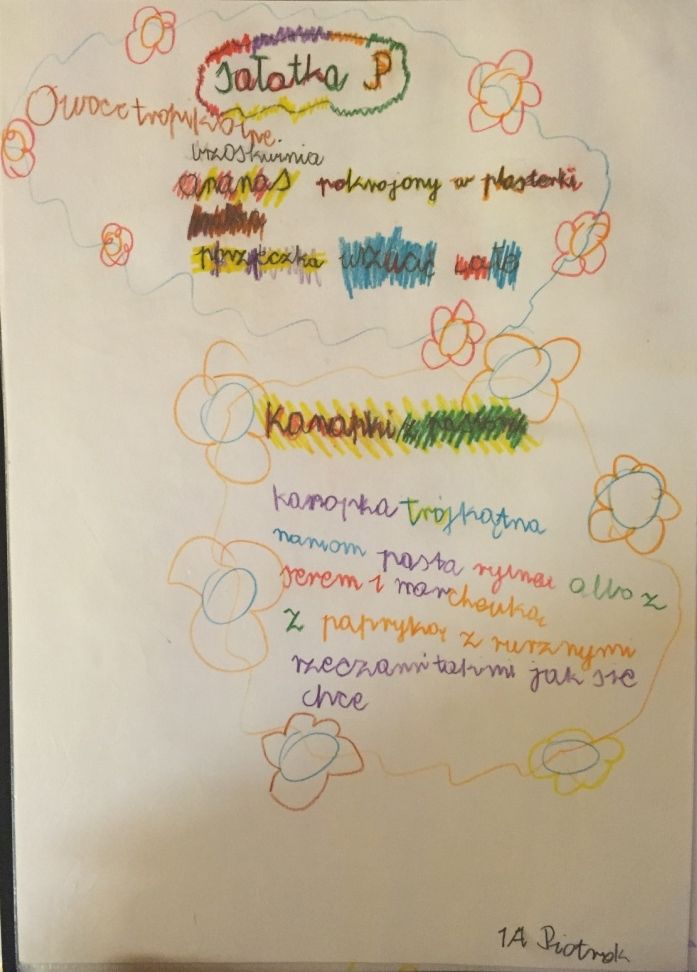 sałatka P
Owoce tropikalne.
brzoskwinia
ananas pokrojony w plasterki
porzeczka wrzucać cało
Kanapki z pastom
kanapka trójkątna
naniom pasta rybna albo z
serem i marchewką
z papryką z rurznymi
rzeczami takimi jak się
chce
1A Piotrek